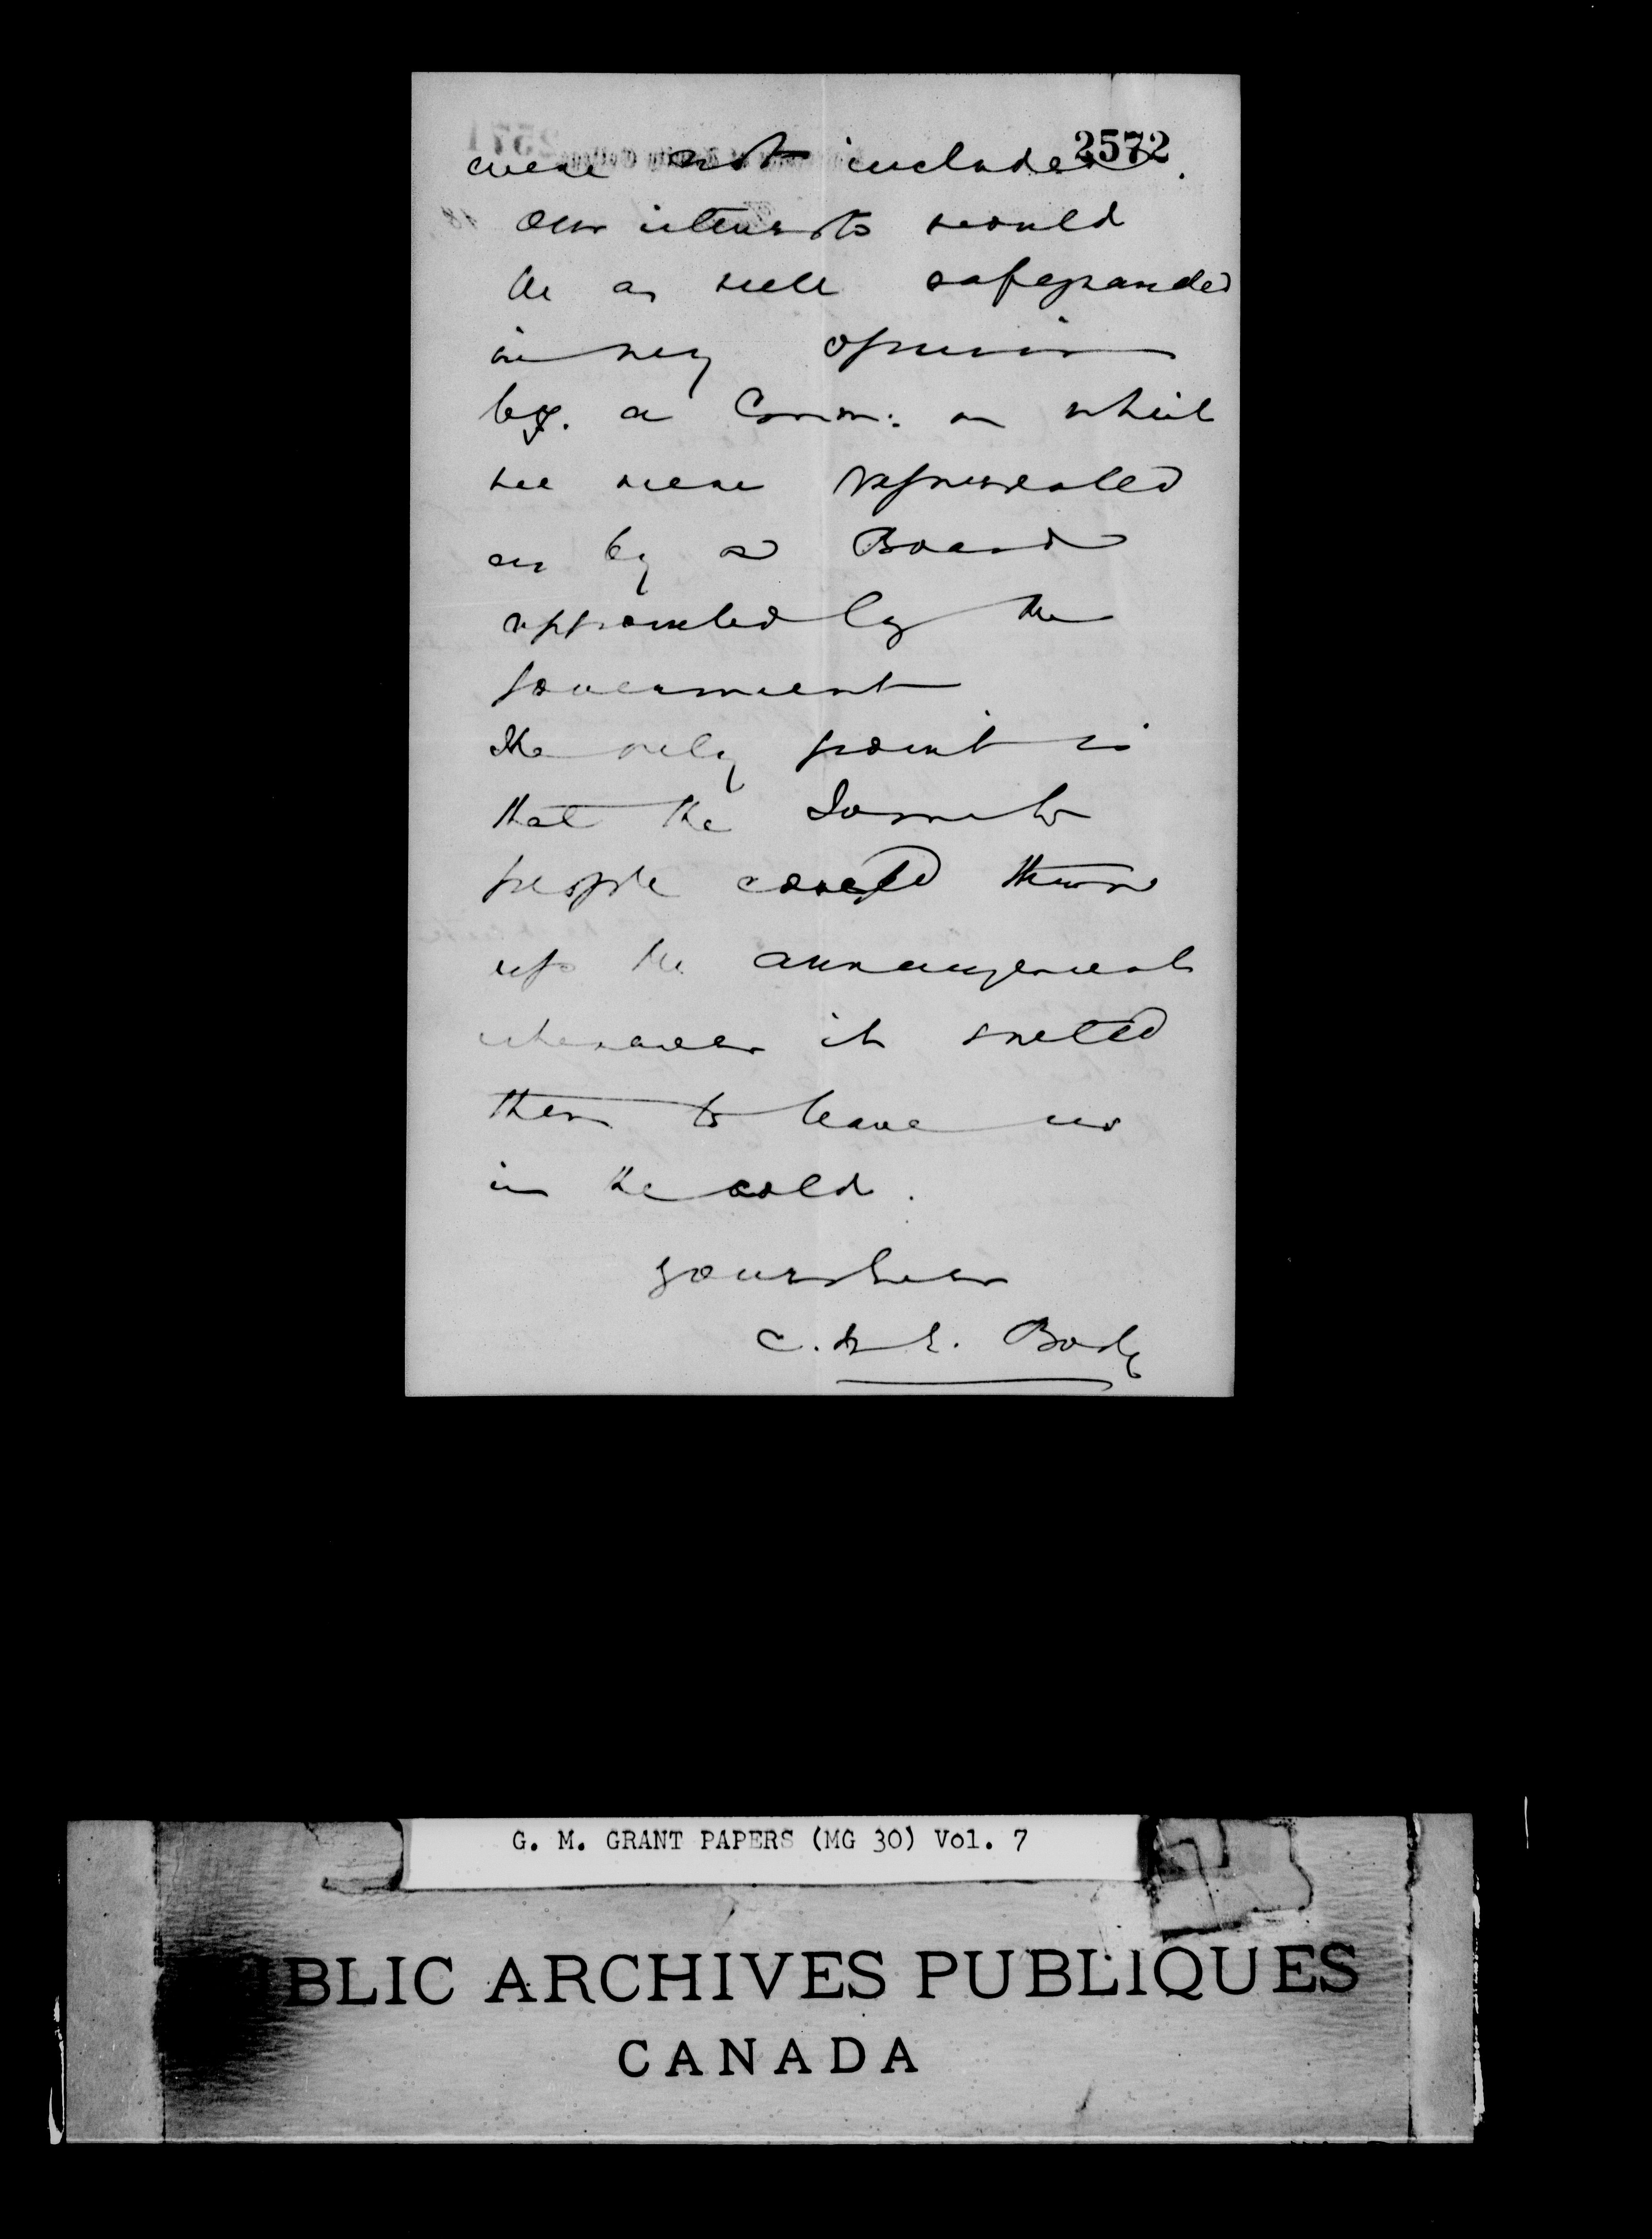 2572
were not included.
Our interests would
be as well safeguarded
in my opinion
by. a Comm: on which
we were represented
as by a Board
appointed by the
government
The only point is
that the Toronto
people could throw
up the arrangement
whenever it suited
them to leave us
in the cold.
yours ever
C. W. E. Body
G. M. GRANT PAPERS (MG 30) Vol. 7
BLIC ARCHIVES PUBLIQUES
CANADA